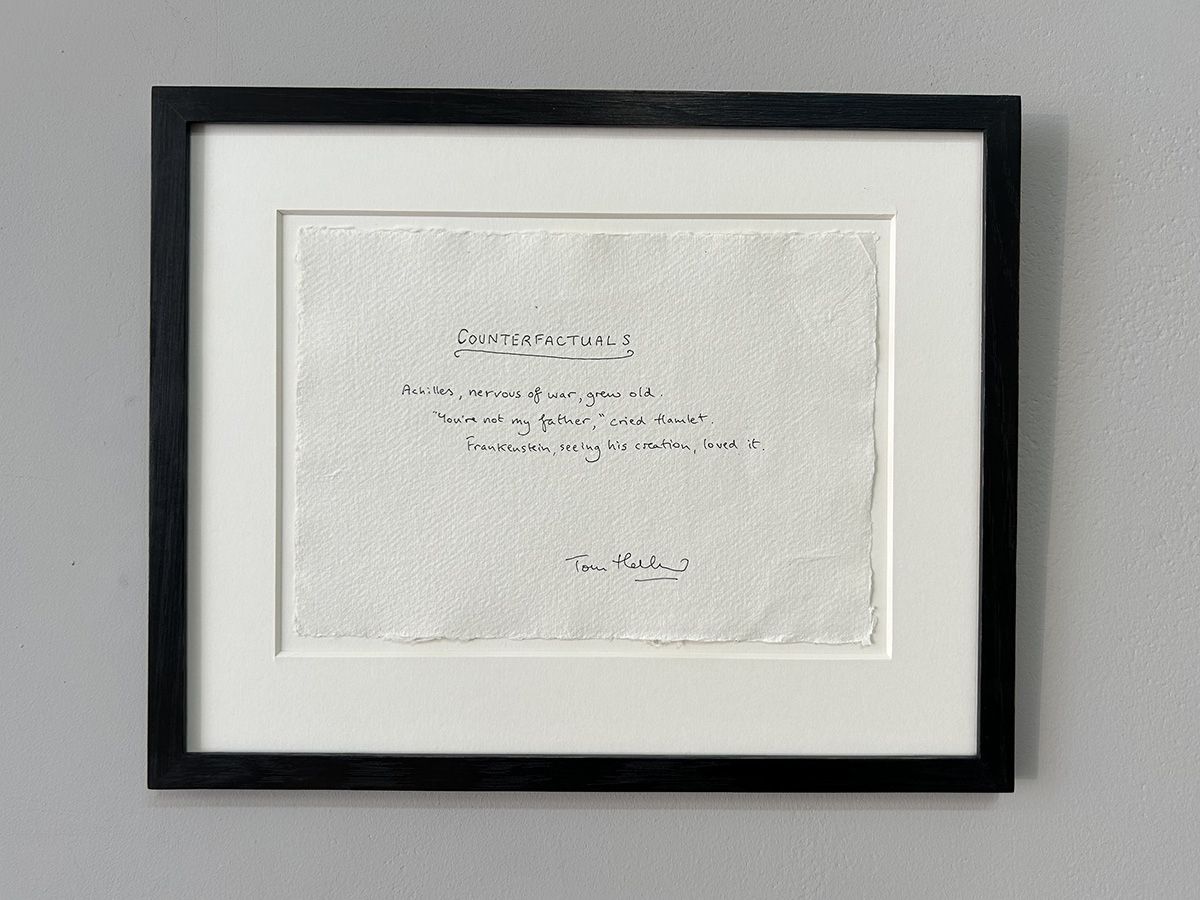 COUNTERFACTUALS
Achilles, nervous of war, grew old.
"You're not my father," cried Hamlet.
Frankenstein, seeing his creation, loved it.
Tom